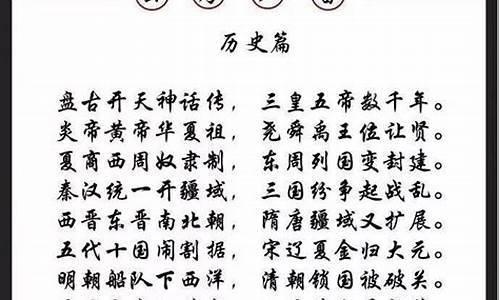 历史篇
盘古开天神话传，三皇五帝数千年。
炎帝黄帝华夏祖，尧舜禹王位让贤。
夏商西周奴隶制，东周列国变封建。
秦汉统一开疆域，三国纷争起战乱。
西晋东晋南北朝，隋唐疆域又扩展。
五代十国闹割据，宋辽夏金归大元。
明朝船队下西洋，清朝锁国被破关。